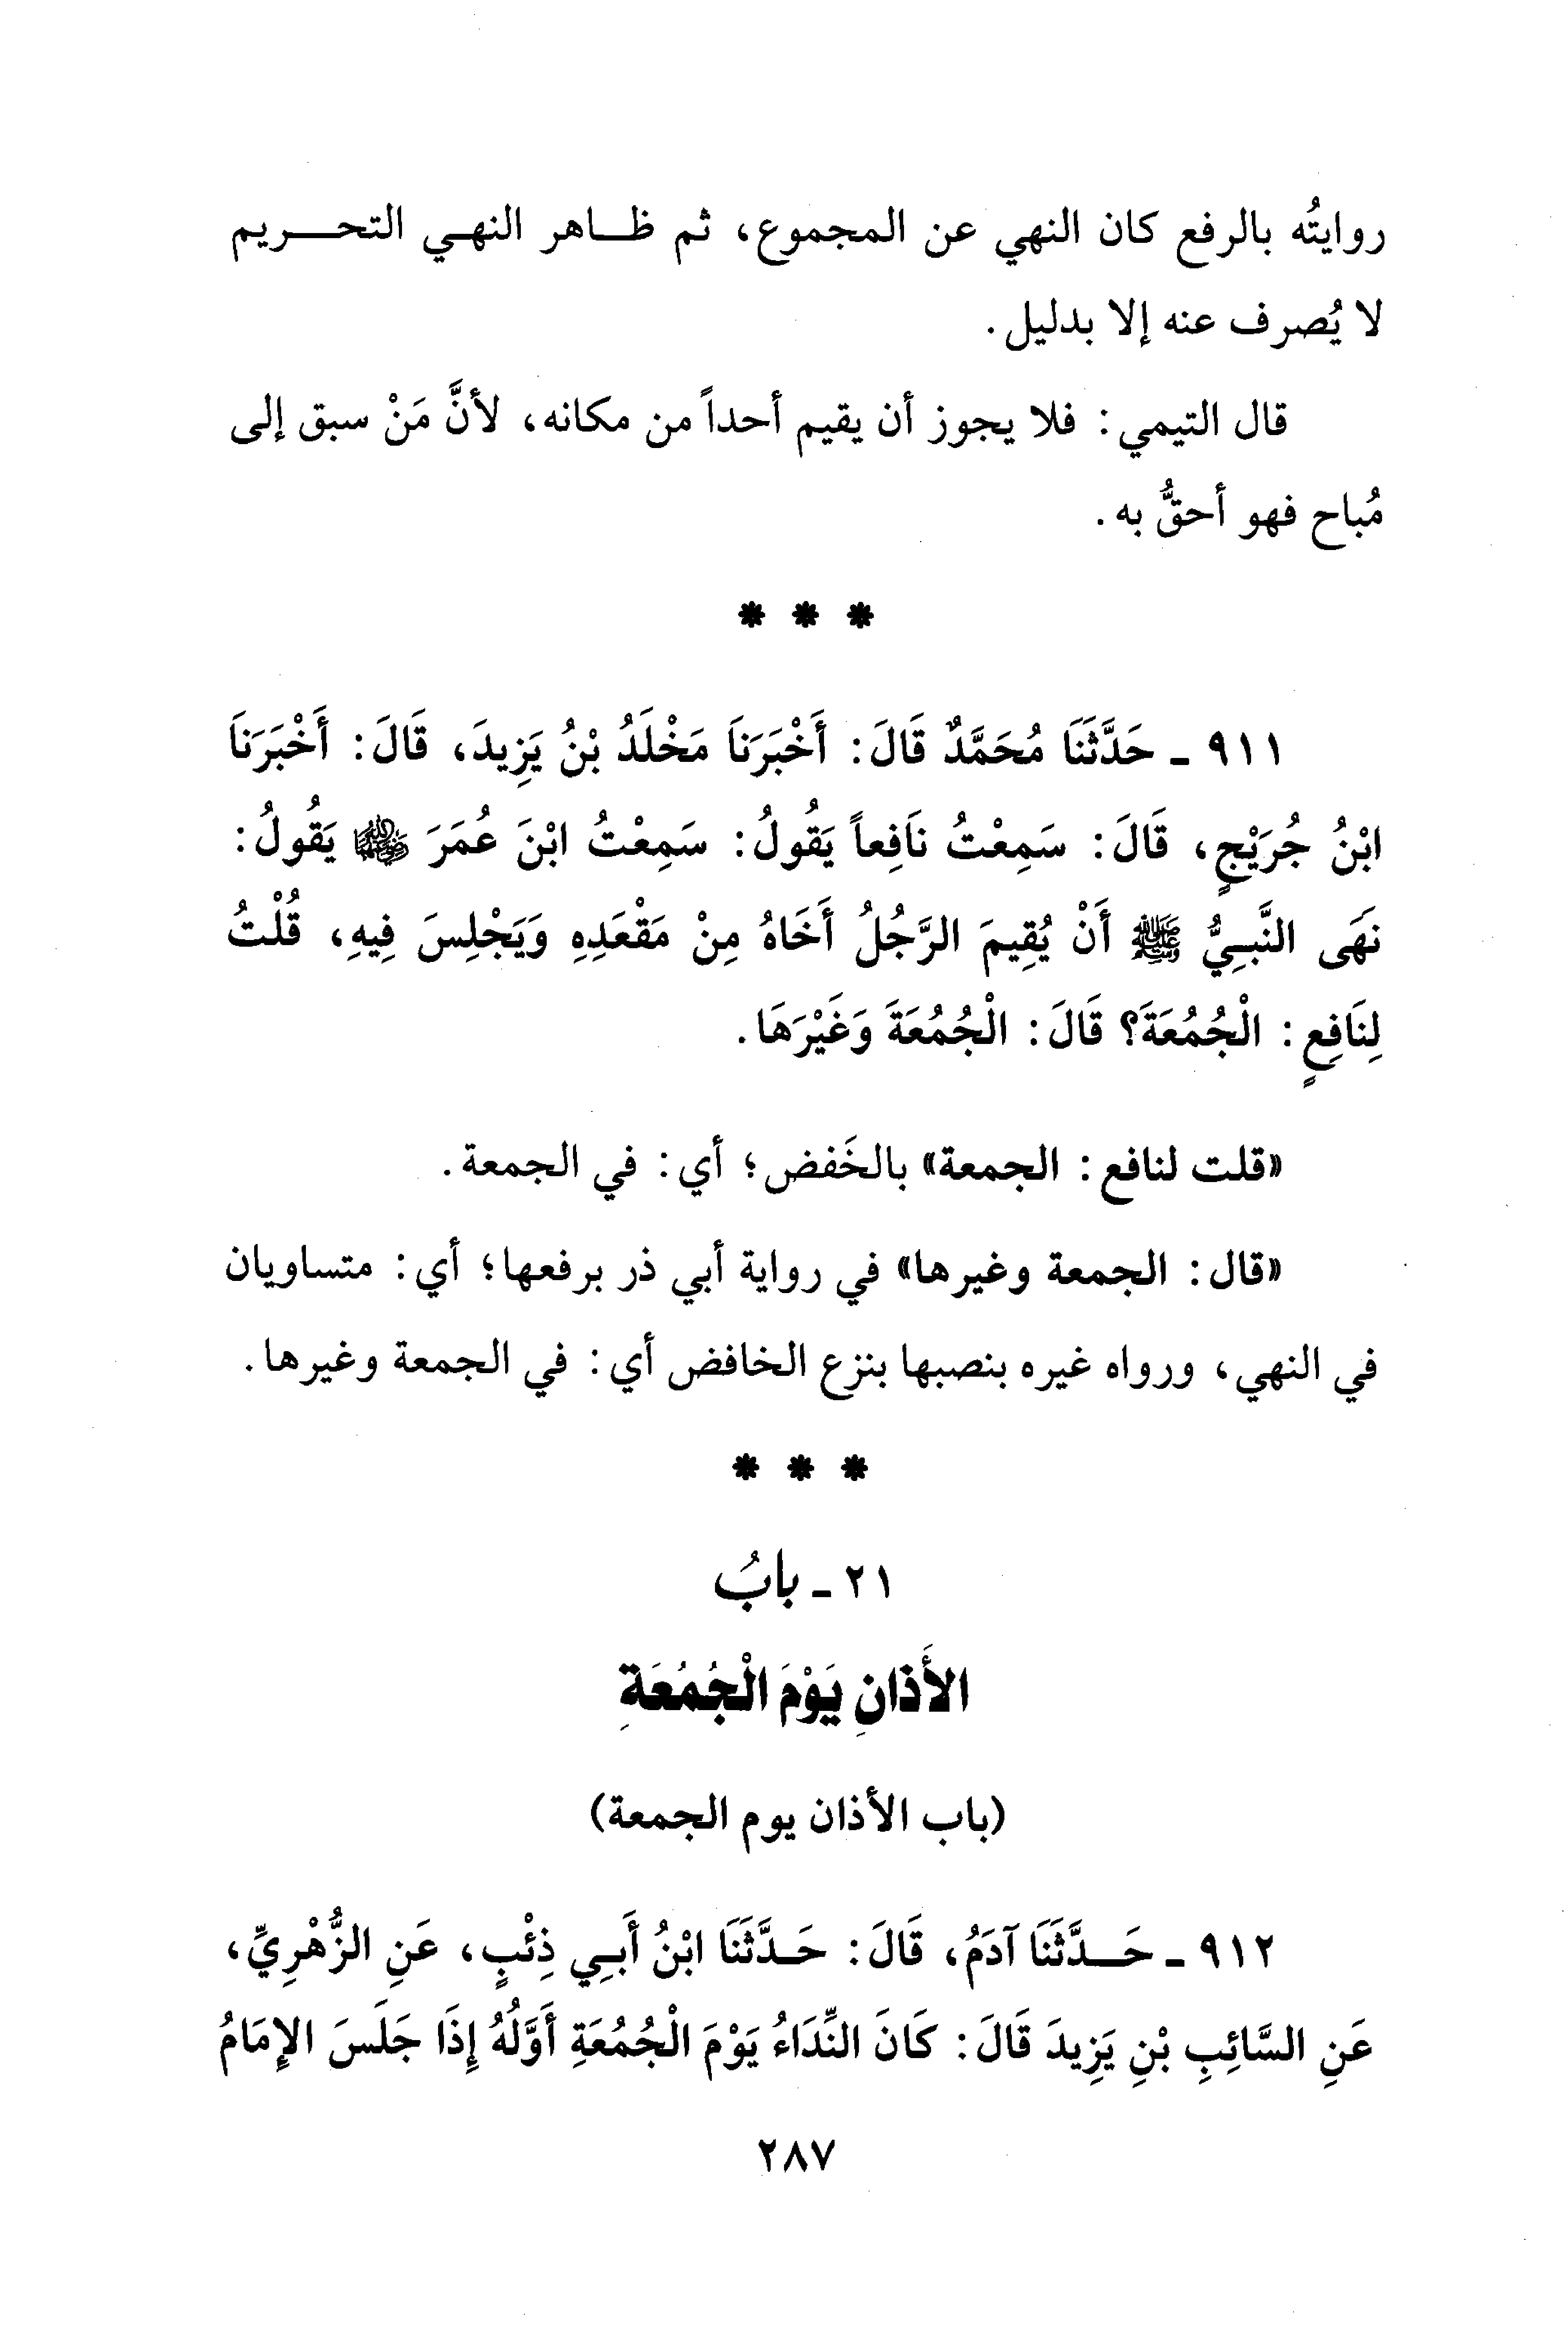 روايتُه بالرفع كان النهي عن المجموع، ثم ظـاهر النهـي التحـــريم
لا يُصرف عنه إلا بدليل.
قال التيمي: فلا يجوز أن يقيم أحداً من مكانه، لأنَّ مَنْ سبق إلى
مُباح فهو أحقُّ به.
* * *
٩١١ ـ حَدَّثَنَا مُحَمَّدٌ قَالَ: أَخْبَرَنَا مَخْلَدُ بْنُ يَزِيدَ، قَالَ: أَخْبَرَنَا
ابْنُ جُرَيْجٍ، قَالَ: سَمِعْتُ نَافِعاً يَقُولُ: سَمِعْتُ ابْنَ عُمَرَ رضي الله عنهما يَقُولُ:
نَهَى النَّبِيُّ ﷺ أَنْ يُقِيمَ الرَّجُلُ أَخَاهُ مِنْ مَقْعَدِهِ وَيَجْلِسَ فِيهِ، قُلْتُ
لِنَافِعٍ: الْجُمُعَةَ؟ قَالَ: الْجُمُعَةَ وَغَيْرَهَا.
«قلت لنافع: الجمعة» بالخَفض؛ أي: في الجمعة.
«قال: الجمعة وغيرها» في رواية أبي ذر برفعها؛ أي: متساويان
في النهي، ورواه غيره بنصبها بنزع الخافض أي: في الجمعة وغيرها.
* * *
٢١ ـ بابُ
الأَذانِ يَوْمَ الْجُمُعَةِ
(باب الأذان يوم الجمعة)
٩١٢ ـ حَـدَّثَنَا آدَمُ، قَالَ: حَـدَّثَنَا ابْنُ أَبِي ذِئْبٍ، عَنِ الزُّهْرِيِّ،
عَنِ السَّائِبِ بْنِ يَزِيدَ قَالَ: كَانَ النِّدَاءُ يَوْمَ الْجُمُعَةِ أَوَّلُهُ إِذَا جَلَسَ الإِمَامُ
٢٨٧